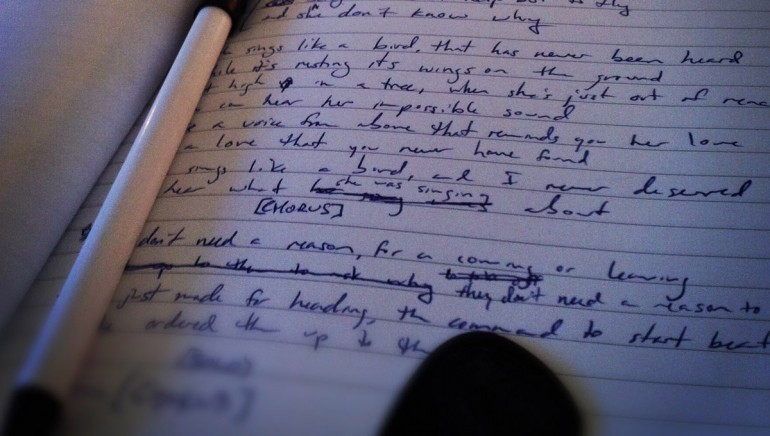 don't know why
sings like a bird, that has never been heard
it's resting it's wings on the ground
high in a tree, when she's just out of reac
can hear her impossible sound
a voice from above that reminds you her love
a love that you never have found
sings like a bird, and I never deserved
hear what she was singing about
[CHORUS]
don't need a reason, for a coming or leaving
they don't need a reason to
just made for heading, the command to start beat
ordered them up to the
[CHORUS]